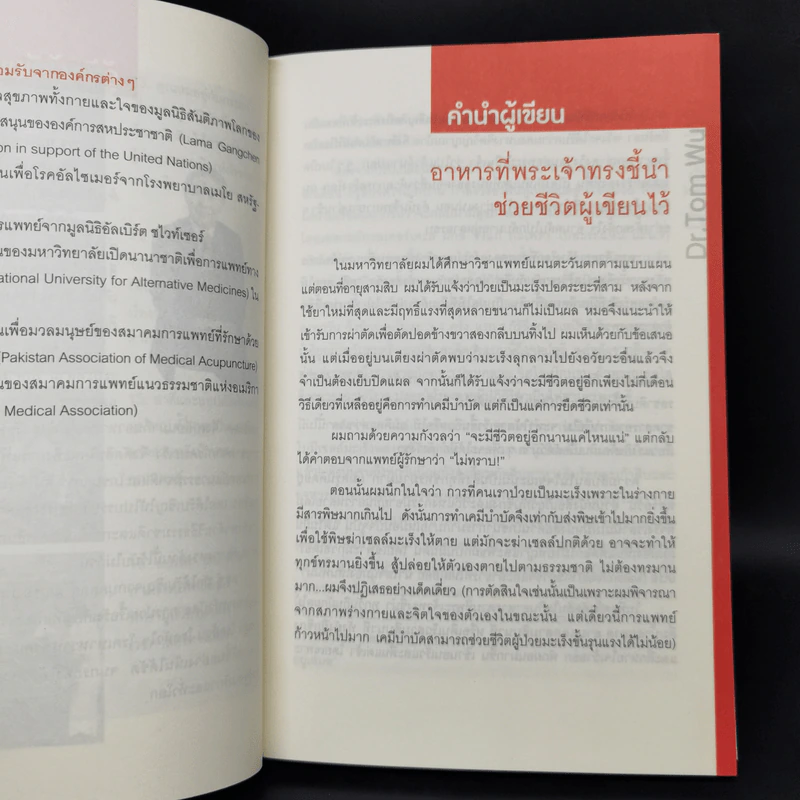 อมรับจากองค์กรต่างๆ
สุขภาพทั้งกายและใจของมูลนิธิสันติภาพโลกของ
สนุนขององค์การสหประชาชาติ (Lama Gangchen
ion in support of the United Nations)
นเพื่อโรคอัลไซเมอร์จากโรงพยาบาลเมโย สหรัฐ-
รแพทย์จากมูลนิธิอัลเบิร์ต ชไวท์เซอร์
นของมหาวิทยาลัยเปิดนานาชาติเพื่อการแพทย์ทาง
ational University for Alternative Medicines) ใน
นเพื่อมวลมนุษย์ของสมาคมการแพทย์ที่รักษาด้วย
(Pakistan Association of Medical Acupuncture)
นของสมาคมการแพทย์แนวธรรมชาติแห่งอเมริกา
Medical Association)
คำนำผู้เขียน
Dr.Tom Wu
อาหารที่พระเจ้าทรงชี้นำ
ช่วยชีวิตผู้เขียนไว้
ในมหาวิทยาลัยผมได้ศึกษาวิชาแพทย์แผนตะวันตกตามแบบแผน
แต่ตอนที่อายุสามสิบ ผมได้รับแจ้งว่าป่วยเป็นมะเร็งปอดระยะที่สาม หลังจาก
ใช้ยาใหม่ที่สุดและมีฤทธิ์แรงที่สุดหลายขนานก็ไม่เป็นผล หมอจึงแนะนำให้
เข้ารับการผ่าตัดเพื่อตัดปอดข้างขวาสองกลีบบนทิ้งไป ผมเห็นด้วยกับข้อเสนอ
นั้น แต่เมื่ออยู่บนเตียงผ่าตัดพบว่ามะเร็งลุกลามไปยังอวัยวะอื่นแล้วจึง
จำเป็นต้องเย็บปิดแผล จากนั้นก็ได้รับแจ้งว่าจะมีชีวิตอยู่อีกเพียงไม่กี่เดือน
วิธีเดียวที่เหลืออยู่คือการทำเคมีบำบัด แต่ก็เป็นแค่การยืดชีวิตเท่านั้น
ผมถามด้วยความกังวลว่า “จะมีชีวิตอยู่อีกนานแค่ไหนแน่” แต่กลับ
ได้คำตอบจากแพทย์ผู้รักษาว่า “ไม่ทราบ!”
ตอนนั้นผมนึกในใจว่า การที่คนเราป่วยเป็นมะเร็งเพราะในร่างกาย
มีสารพิษมากเกินไป ดังนั้นการทำเคมีบำบัดจึงเท่ากับส่งพิษเข้าไปมากยิ่งขึ้น
เพื่อใช้พิษฆ่าเซลล์มะเร็งให้ตาย แต่มักจะฆ่าเซลล์ปกติด้วย อาจจะทำให้
ทุกข์ทรมานยิ่งขึ้น สู้ปล่อยให้ตัวเองตายไปตามธรรมชาติ ไม่ต้องทรมาน
มาก...ผมจึงปฏิเสธอย่างเด็ดเดี่ยว (การตัดสินใจเช่นนั้นเป็นเพราะผมพิจารณา
จากสภาพร่างกายและจิตใจของตัวเองในขณะนั้น แต่เดี๋ยวนี้การแพทย์
ก้าวหน้าไปมาก เคมีบำบัดสามารถช่วยชีวิตผู้ป่วยมะเร็งขั้นรุนแรงได้ไม่น้อย)